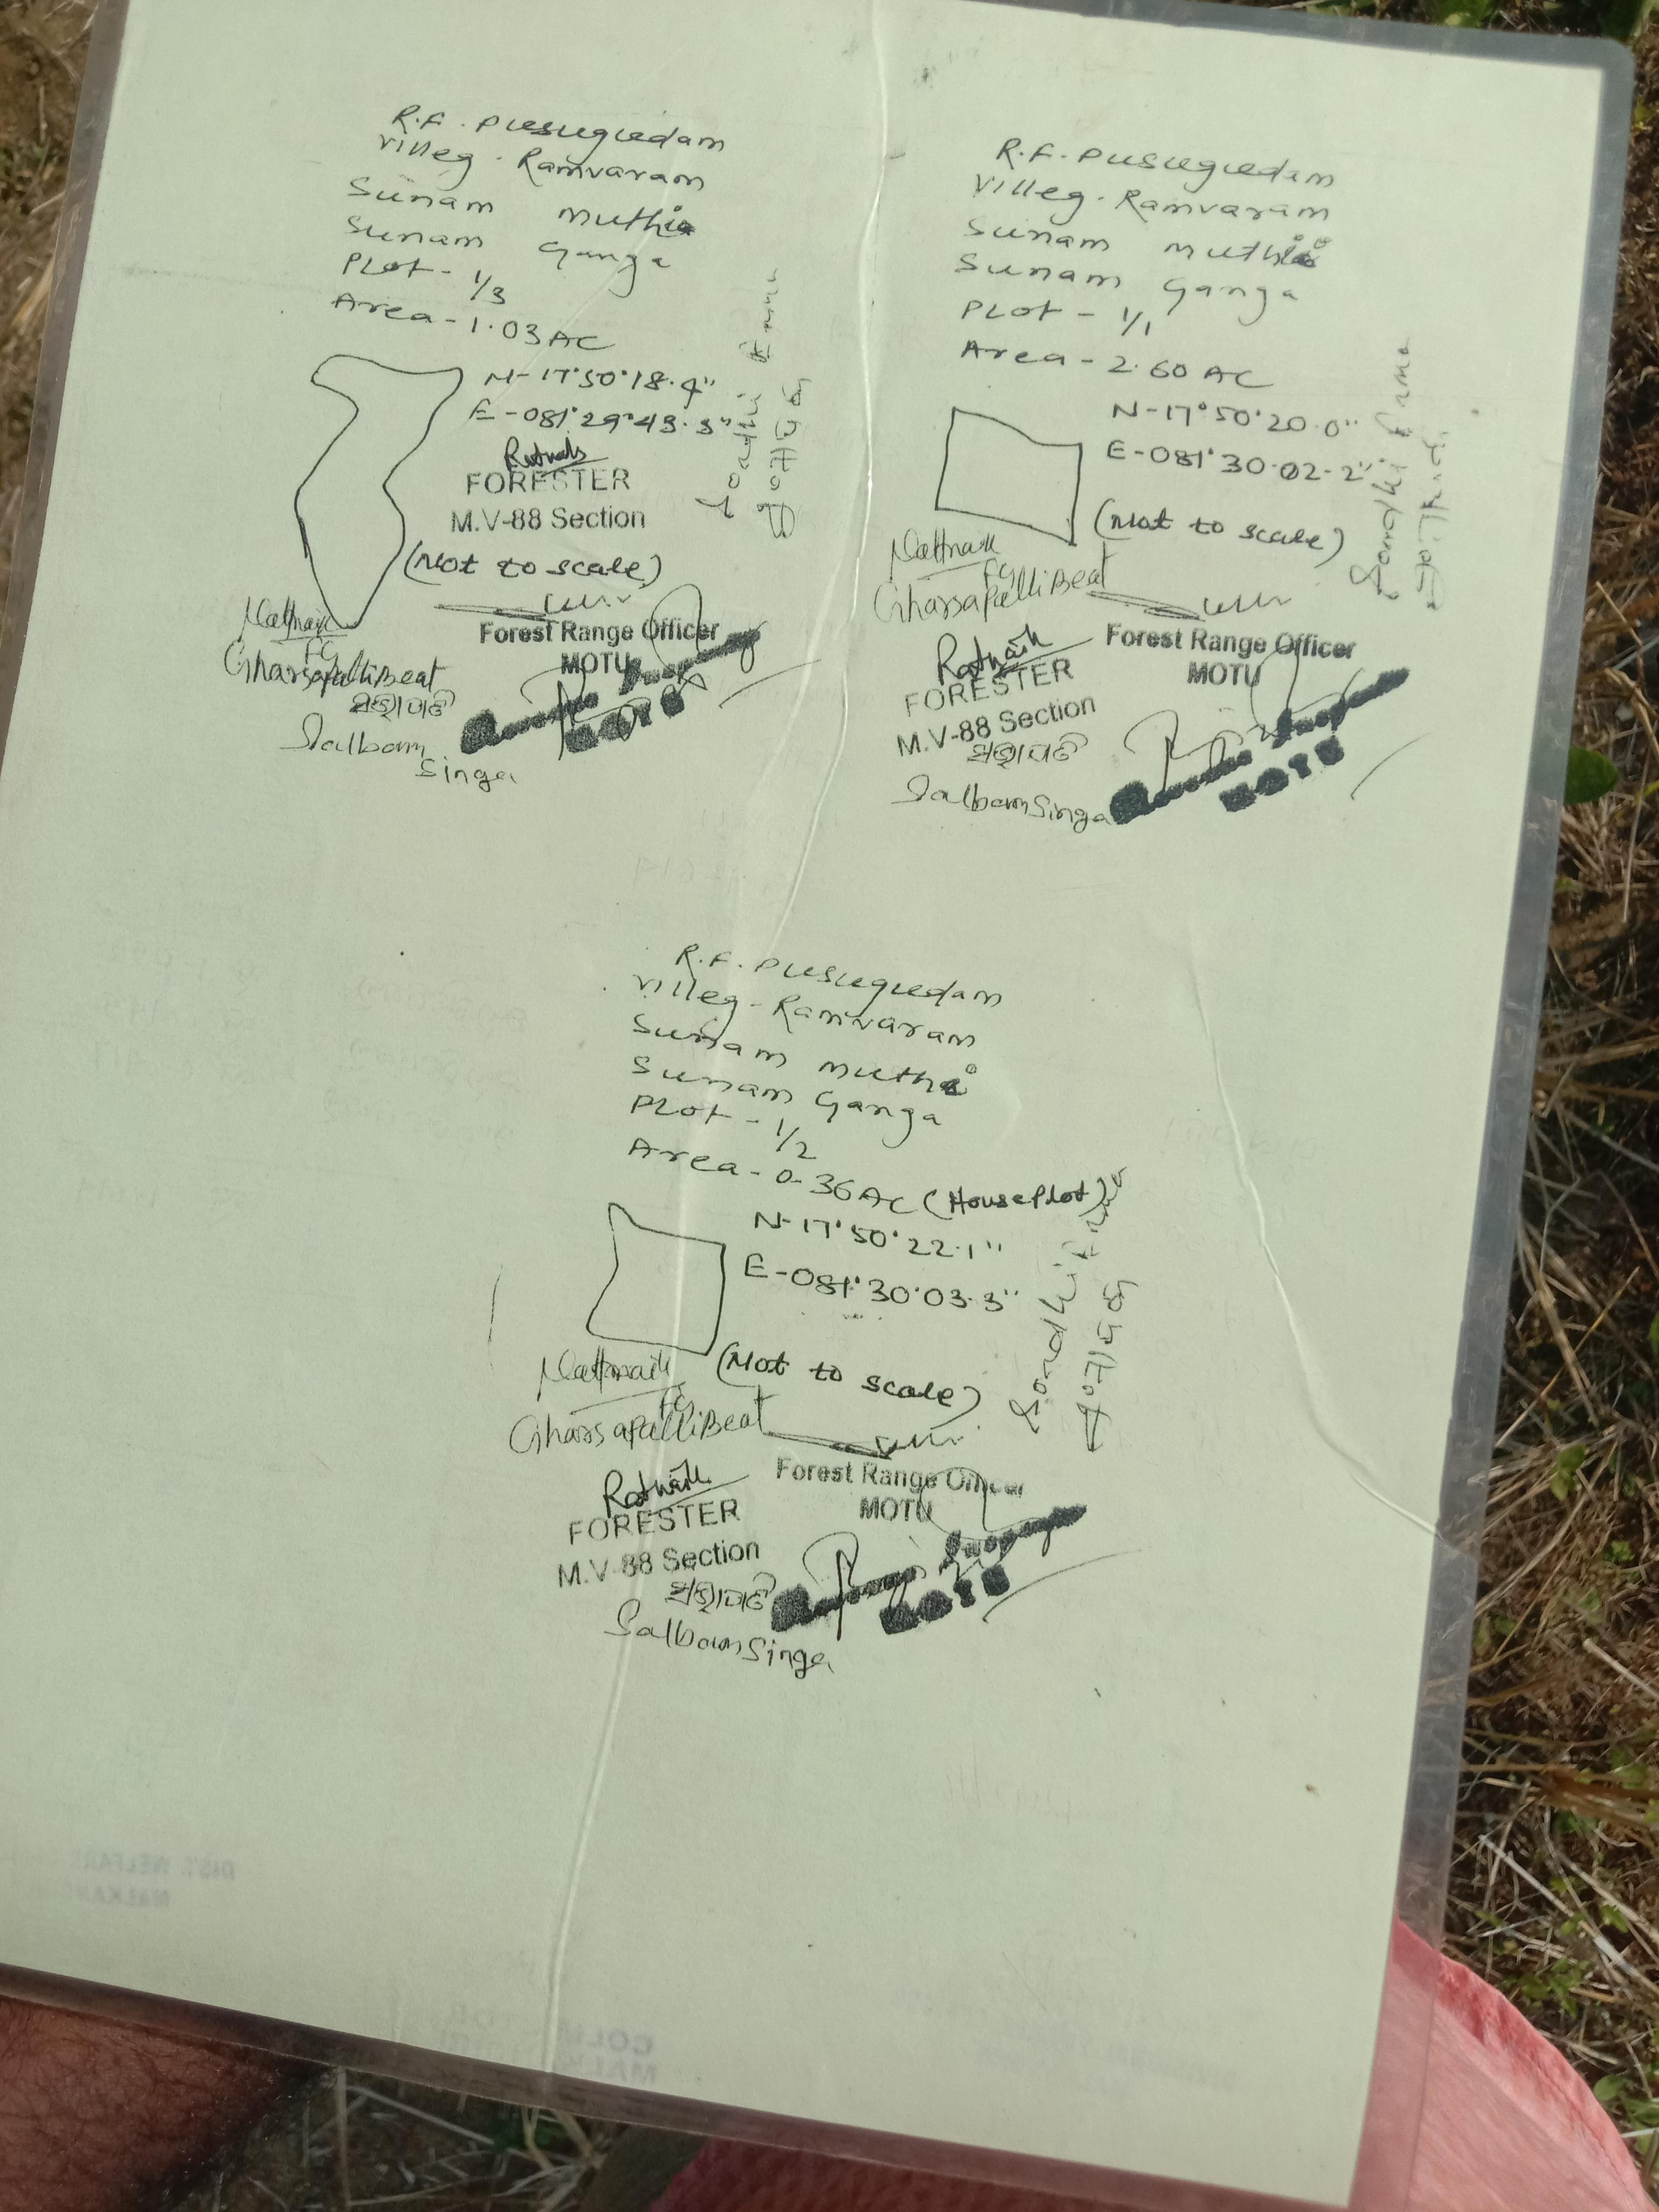 R.F. Pusugudam
Villeg - Ramvaram
Sunam Muthia
Sunam Ganga
Plot - 1/3
Area - 1.03 AC
N-17°50'18.4"
E-081°29'43.3"
FORESTER
M.V-88 Section
(Not to scale)
Forest Range Officer
MOTU
GharsapalliBeat
ସଭାପତି
Salbam
Singa
R.F. Pusugudam
Villeg - Ramvaram
Sunam Muthia
Sunam Ganga
Plot - 1/1
Area - 2.60 AC
N-17°50'20.0"
E-081°30'02.2"
(Not to scale)
GharsapalliBeat
Forest Range Officer
MOTU
FORESTER
M.V-88 Section
ସଭାପତି
Salbam Singa
R.F. Pusugudam
Villeg - Ramvaram
Sunam Mutha
Sunam Ganga
Plot - 1/2
Area - 0.36 AC (House Plot)
N-17°50'22.1"
E-081°30'03.3"
(Not to scale)
GharsapalliBeat
Forest Range Officer
MOTU
FORESTER
M.V-88 Section
ସଭାପତି
Salbam Singa